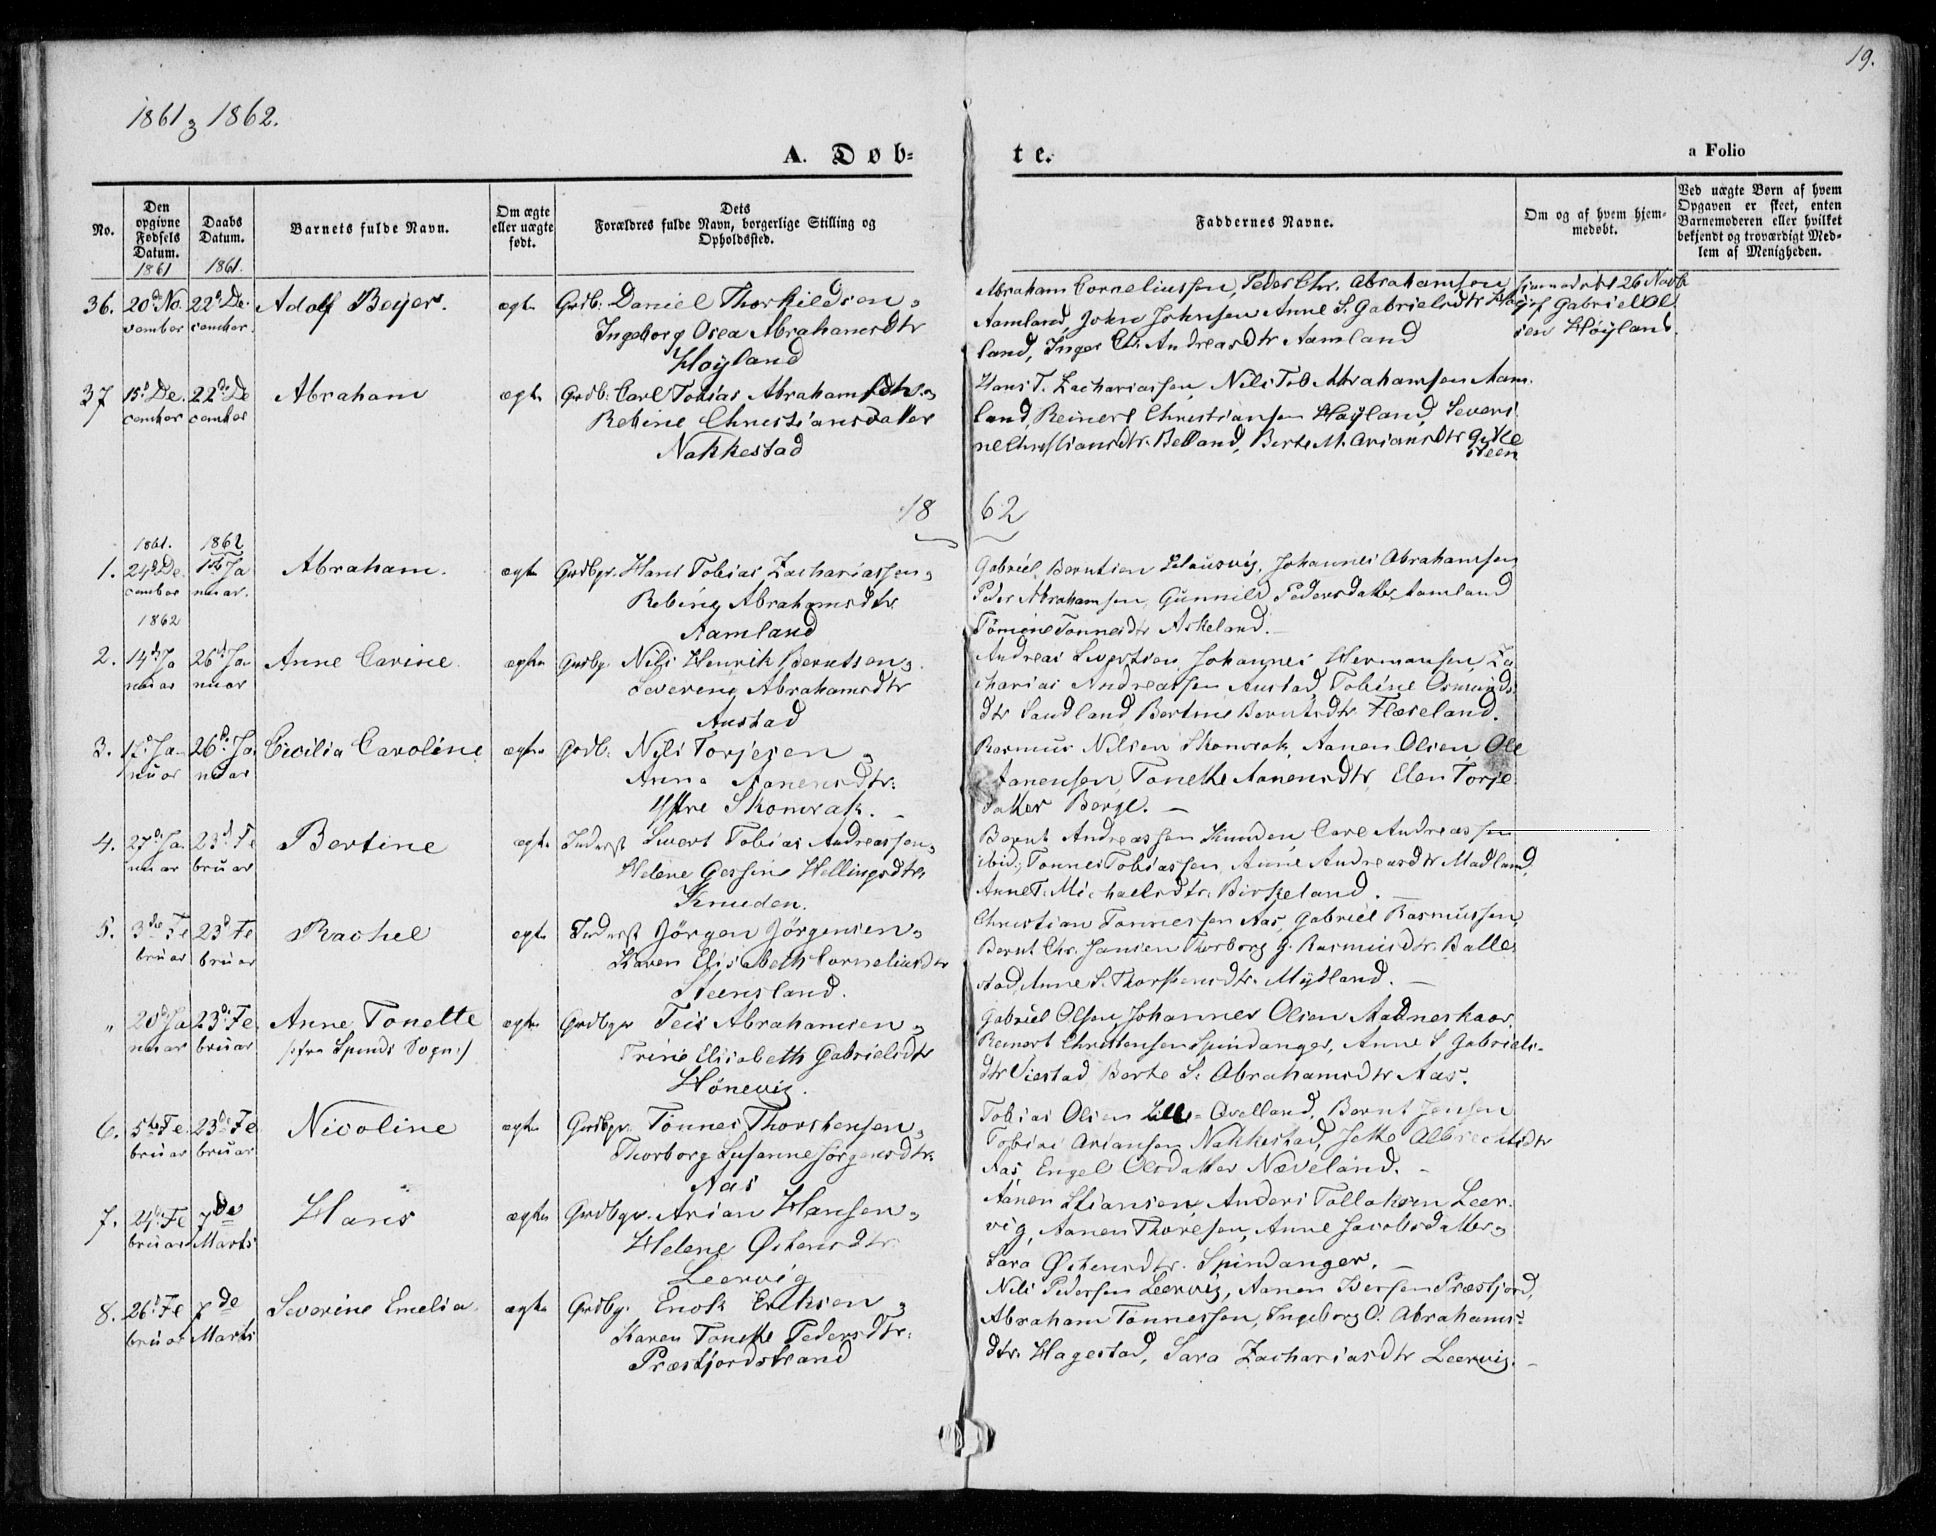 19.
1861 & 1862.
A. Døb- te.
a Folio
No.
Den opgivne Fødsels Datum. 1861
Daabs Datum. 1861.
Barnets fulde Navn.
Om ægte eller uægte født.
Dets Forældres fulde Navn, borgerlige Stilling og Opholdssted.
Faddernes Navne.
Om og af hvem hjemmedøbt.
Ved uægte Børn af hvem Opgaven er skeet, enten Barnemoderen eller hvilket bekjendt og troværdigt Medlem af Menigheden.
36. 20de No- 22de De- Adolf Beyer. ægte Grdb: Daniel Thorkildsen &
vember cember. Ingeborg Osea Abrahamsdtr
Høyland
Abraham Corneliussen, Peder Chr. Abrahamsen
Aamland, John Johnsen Anne S. Gabrielsdtr
land, Inger Andreasdtr Aamland
hjemmedøbt 26 Novbr
af Gabriel Ol
sen Høyland.
37 15de De- 22de De Abraham ægte Grdb: Carl Tobias Abrahamsen &
cember cember Rebine Christiansdatter
Nakkestad
Hans T. Zachariassen, Nils Tob Abrahamsen Aam
land, Reinert Christiansen Høyland, Severi
ne Christiansdtr. Belland, Berte M. Ariansdtr Gitle
steen
18 62
1861. 1862
1. 24de De- 1ste Ja Abraham. ægte Grdbgr. Hans Tobias Zachariassen &
cember nuar. Rebine Abrahamsdtr
Aamland
Gabriel Berntsen Klausvig, Johannes Abrahamsen
Peder Abrahamsen, Gunnild Pedersdatter Aamland
Tomine Tonnesdtr Askeland.
1862
2. 14de Ja 26de Ja- Anne Carine. ægte Grdbg. Nils Henrik Berntsen &
nuar nuar Severine Abrahamsdtr
Austad
Andreas Sivertsen, Johannes Hermansen, Za
charias Andreassen Austad, Tobine Osmunds
dtr Sandland, Bertine Berntsdtr. Flæseland.
3. 17de Ja- 26de Ja- Cecilia Caroline. ægte Grdb: Nils Torjesen &
nuar nuar Anna Aanensdtr:
Yttre Skomrak.
Rasmus Nilsen Skomrak, Aanen Olsen, Ole
Aanensen, Tonette Aanensdtr, Elen Torje
datter Berge.
4. 27de Ja- 23de Fe Bertine ægte Inderst Sivert Tobias Andreassen &
nuar bruar Helene Gessine Hellingsdtr.
Knuden.
Bernt Andreassen Knuden, Carl Andreassen
ibid; Tonnes Tobiassen, Anne Andreasdtr Madland,
Anne T. Michaelsdtr: Birkeland.
5. 3die Fe 23de Fe Rachel ægte Inderst Jørgen Jørgensen &
bruar bruar Karen Elisabeth Corneliusdtr
Steensland.
Christian Tonnessen Aas, Gabriel Rasmussen,
Bernt Chr. Jansen Thorborg G. Rasmusdtr. Balle
stad, Anne S. Thorstensdtr. Mydland.
" 20de Ja 23de Fe. Anne Tonette ægte Grdbgr Teis Abrahamsen &
nuar bruar (:fra Spinds Sogn:) Trine Elisabeth Gabrielsdtr
Hønevig.
Gabriel Olsen, Johannes Olsen Aadneskaar.
Reinert Christensen Spindanger, Anne S Gabriels-
dtr Siestad, Berte S. Abrahamsdtr Aas.
6. 5te Fe. 23de Fe Nicoline ægte Grdbgr. Tonnes Thorstensen &
bruar bruar Thorborg Susanne Jørgensdtr.
Aas
Tobias Olsen Lille-Qvelland, Bernt Jensen
Tobias Ariansen Nakkestad, Jette Albrechtsdtr
Aas, Engel Olsdatter Næveland.
7. 24de Fe 7de Hans ægte Grdbgr. Arian Hansen &
bruar Marts Helene Østensdtr
Leervig
Aanen Stiansen, Anders Tollaksen Leer-
vig, Aanen Thoresen, Anne Jacobsdatter &
Sara Østensdtr. Spindanger.
8. 26de Fe 7de Severine Emelia. ægte Grdbg. Enok Eriksen &
bruar Marts Karen Tonette Pedersdtr:
Præstfjordstrand
Nils Pedersen Leervig, Aanen Iversen Præstfjord,
Abraham Tonnessen, Ingeborg O. Abrahams-
dtr. Hagestad, Sara Zachariasdtr Leervig.